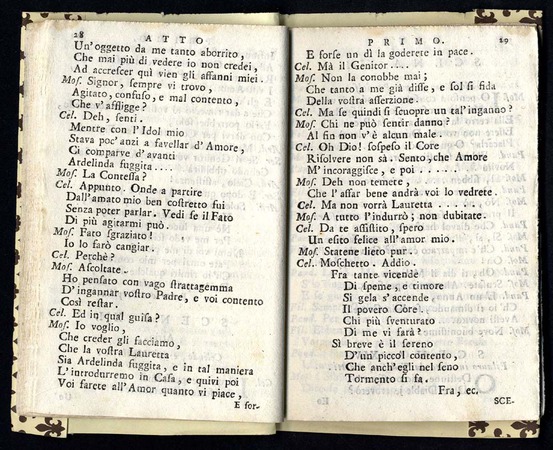 28 ATTO
Un'oggetto da me tanto aborrito,
Che mai più di vedere io non credei,
Ad accrescer quì vien gli affanni miei.
Mos. Signor, sempre vi trovo,
Agitato, confuso, e mal contento,
Che v'affligge?
Cel. Deh, senti.
Mentre con l'Idol mio
Stava poc'anzi a favellar d'Amore,
Ci comparve d'avanti
Ardelinda fuggita....
Mos. La Contessa?
Cel. Appunto. Onde a partire
Dall'amato mio ben costretto fui
Senza poter parlar. Vedi se il Fato
Di più agitarmi può.
Mos. Fato sgraziato!
Io lo farò cangiar.
Cel. Perchè?
Mos. Ascoltate.
Ho pensato con vago strattagemma
D'ingannar vostro Padre, e voi contento
Così restar.
Cel. Ed in qual guisa?
Mos. Io voglio,
Che creder gli facciamo,
Che la vostra Lauretta
Sia Ardelinda fuggita, e in tal maniera
L'introdurremo in Casa, e quivi poi
Voi farete all'Amor quanto vi piace,
E for-
PRIMO. 29
E forse un dì la goderete in pace.
Cel. Mà il Genitor....
Mos. Non la conobbe mai;
Che tanto a me già disse, e sol si fida
Della vostra asserzione.
Cel. Ma se quindi si scuopre un tal'inganno?
Mos. Chi ne può sentir danno?
Al fin non v'è alcun male.
Cel. Oh Dio! sospeso il Core
Risolvere non sà. Sento, che Amore
M'incoraggisce, e poi......
Mos. Deh non temete,
Che l'affar bene andrà voi lo vedrete.
Cel. Ma non vorrà Lauretta......
Mos. A tutto l'indurrò; non dubitate.
Cel. Da te assistito, spero
Un esito felice all'amor mio.
Mos. Statene lieto pur.
Cel. Moschetto. Addio.
Fra tante vicende
Di speme, e timore
Si gela s'accende
Il povero Core.
Chi più sventurato
Di me vi sarà?
Sì breve è il sereno
D'un piccol contento,
Che anch'egli nel seno
Tormento si fa.
Fra, ec.
SCE-